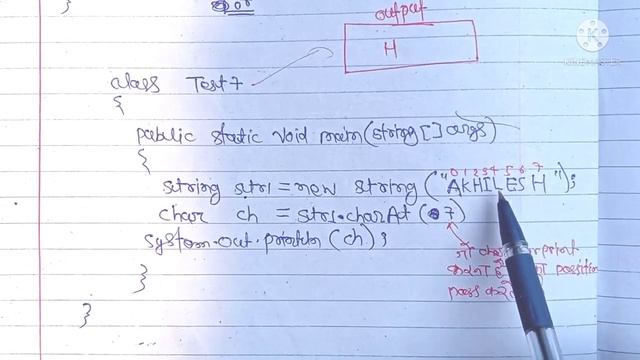 output
H
class Test7
{
public static void main(string[] args)
{
0 1 2 3 4 5 6 7
string str1 = new string ("AKHILESH");
char ch = str1.charAt(7)
system.out.println(ch);
जो
print
करना है position
pass करें
}
}